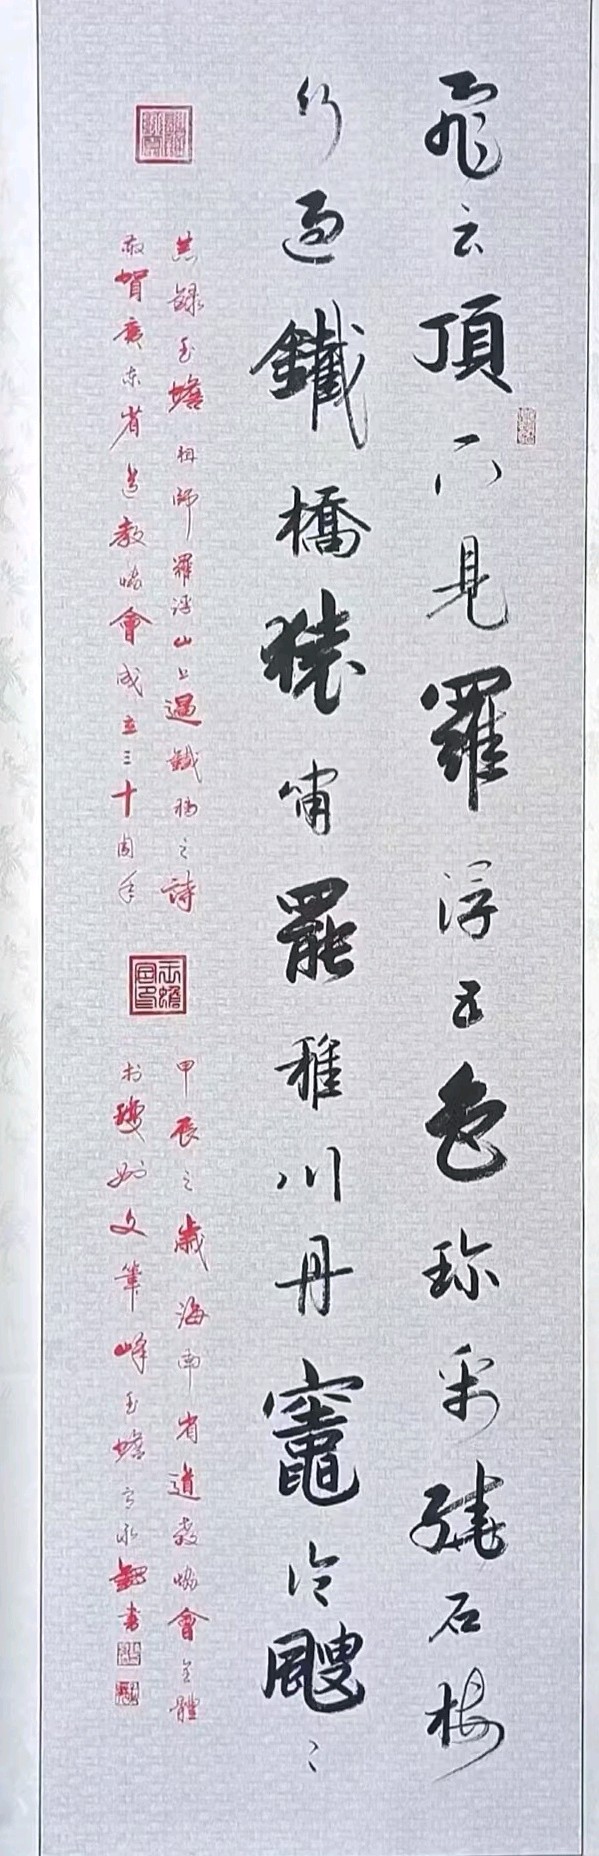 飛云頂下見羅浮五色珎禽繞石樓
行過鐵橋猿嘯罷稚川丹竈冷颼〻
恭録玉蟾祖師羅浮山上過鐵橋之詩
敬賀廣東省道教協會成立三十周年
甲辰之歲海南省道教協會全體
於瓊州文筆峰玉蟾宮永書
玉蟾宮印